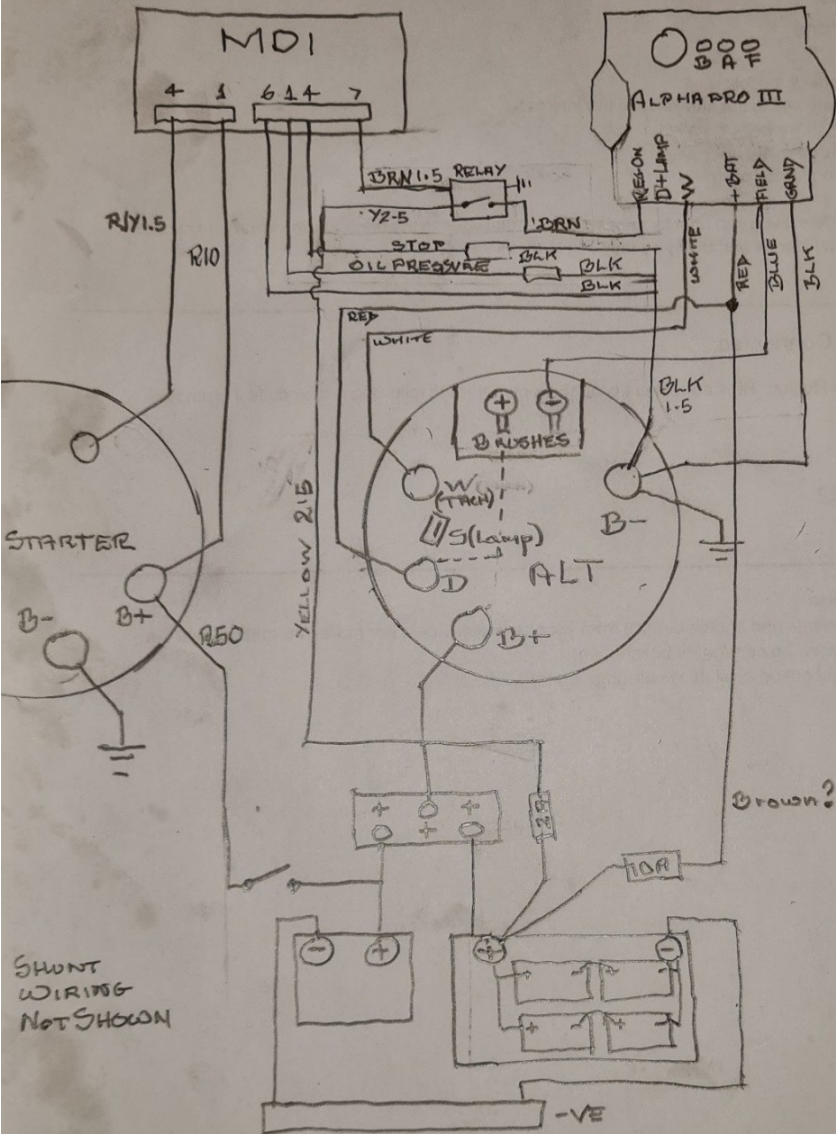 MDI
4 1 6 1 4 7
B A F
ALPHAPRO III
REGON
D+LAMP
W
+BAT
FIELD
GRND
BRN 1.5 RELAY
Y2-5
BRN
R/Y1.5
R10
STOP
BLK
OIL PRESSURE
BLK
BLK
WHITE
RED
BLUE
BLK
RED
WHITE
BLK
1.5
+ -
BRUSHES
W
(TACH)
S(Lamp)
D
ALT
B-
B+
STARTER
B-
B+
R50
YELLOW 2.5
Brown?
+ + +
10A
- +
+ -
+ - + -
+ - + -
SHUNT
WIRING
NOT SHOWN
-VE